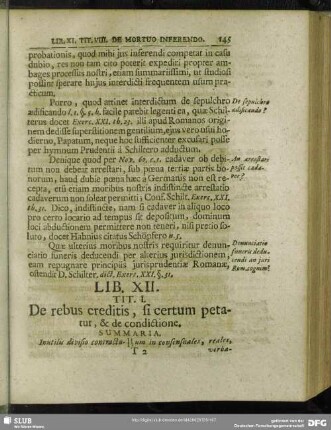 LIB. XI. TIT. VIII. DE MORTUO INFERENDO. 145
probationis, quod mihi jus inferendi competat in casu
dubio, res non tam cito poterit expediri propter am-
bages processus nostri, etiam summariissimi, ut studiosi
possint sperare hujus interdicti frequentem usum pra-
cticum.
Porro, quod attinet interdictum de sepulchro
ædificando l. 1. §. 5. h. facile patebit legenti ea, quæ Schil-
terus docet Exerc. XXI. th. 29. ubi apud Romanos origi-
nem dedisse superstitionem gentilium, ejus vero usui ho-
dierno, Papatum, neque hoc sufficienter excusari posse
per hymnum Prudentii à Schiltero adductum.
De sepulchro
ædificando?
Denique quod per Nov. 60. c. 1. cadaver ob debi-
tum non debeat arrestari, sub pœna tertiæ partis bo-
norum, haud dubiè pœna hæc à Germanis non est re-
cepta, etsi etiam moribus nostris indistinctè arrestatio
cadaverum non soleat permitti, Conf. Schilt. Exerc. XXI.
th. 31. Dico, indistinctè, nam si cadaver in aliquo loco
pro certo locario ad tempus sit depositum, dominum
loci abductionem permittere non teneri, nisi pretio so-
luto, docet Hahnius citatus Schöpfero n. 5.
An arrestari
possit cada-
ver?
Quæ ulterius moribus nostris requiritur denun-
ciatio funeris deducendi per alterius jurisdictionem,
eam repugnare principiis jurisprudentiæ Romanæ,
ostendit D. Schilter. dict. Exerc. XXI. §. 31.
Denunciatio
funeris dedu-
cendi an juri
Rom. congrua?
LIB. XII.
TIT. I.
De rebus creditis, si certum peta-
tur, & de condictione.
SUMMARIA.
Inutilis divisio contractu- || um in consensuales, reales,
T 2 verba-
SLUB
Wir führen Wissen.
DFG